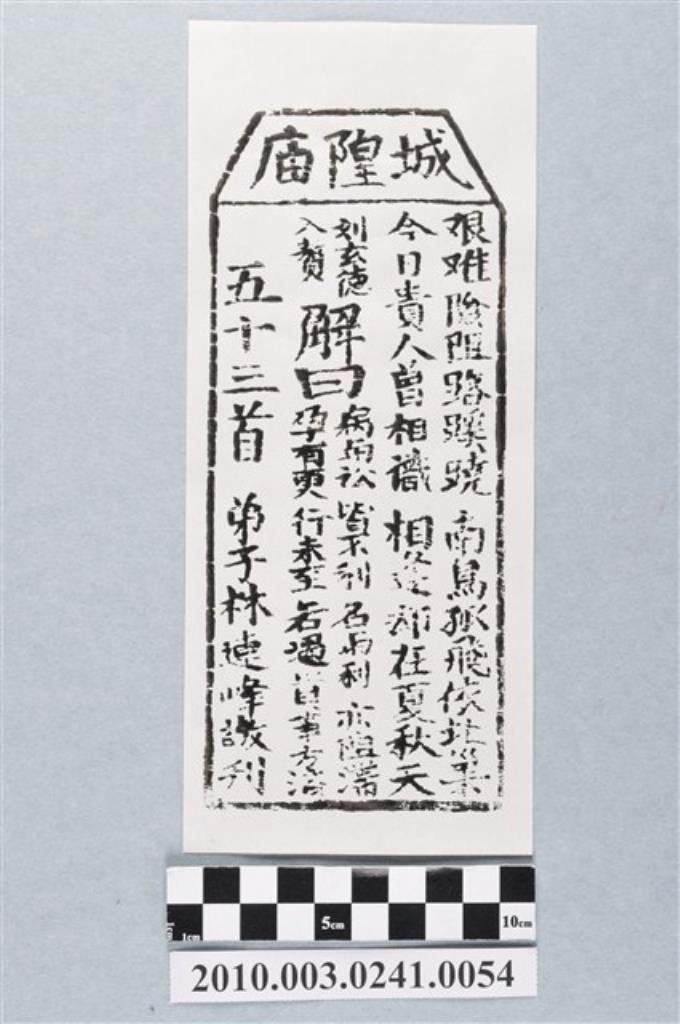 城隍庙
艰难險阻路蹊蹺 南鳥孤飛依北巢
今日貴人曾相識 相逢却在夏秋天
刘玄德
入贅
解曰
病与訟 皆不利 名与利 亦阻滯
孕有更 行未至 若過 事方
五十三首 弟子林連峰敬刊
5cm
10cm
1cm
2010.003.0241.0054